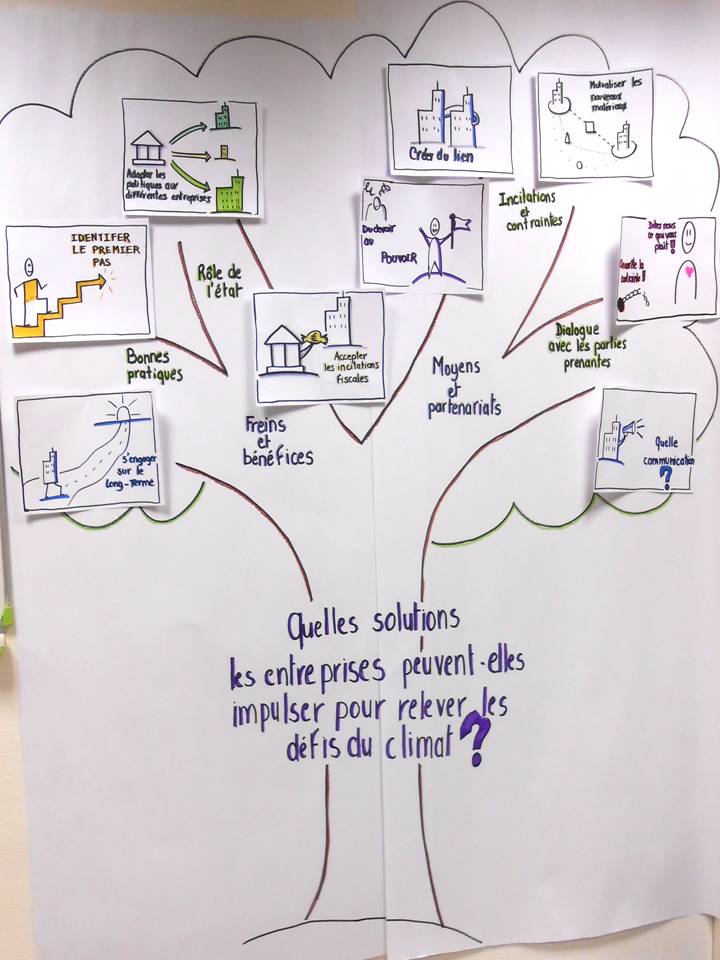 Créer du lien
Mutualiser les
nouveaux
matériaux
Adapter les
politiques aux
différentes entreprises
Du devoir
au
POUVOIR
Incitations
et
contraintes
IDENTIFER
LE PREMIER
PAS
Dites nous
ce qui vous
plait !!
Rôle de
l'état
Bonnes
pratiques
Accepter
les incitations
fiscales
Dialogue
avec les parties
prenantes
Moyens
et
partenariats
Freins
et
bénéfices
s'engager
sur le
long-terme
Quelle
communication
?
Quelles solutions
les entreprises peuvent-elles
impulser pour relever les
défis du climat ?